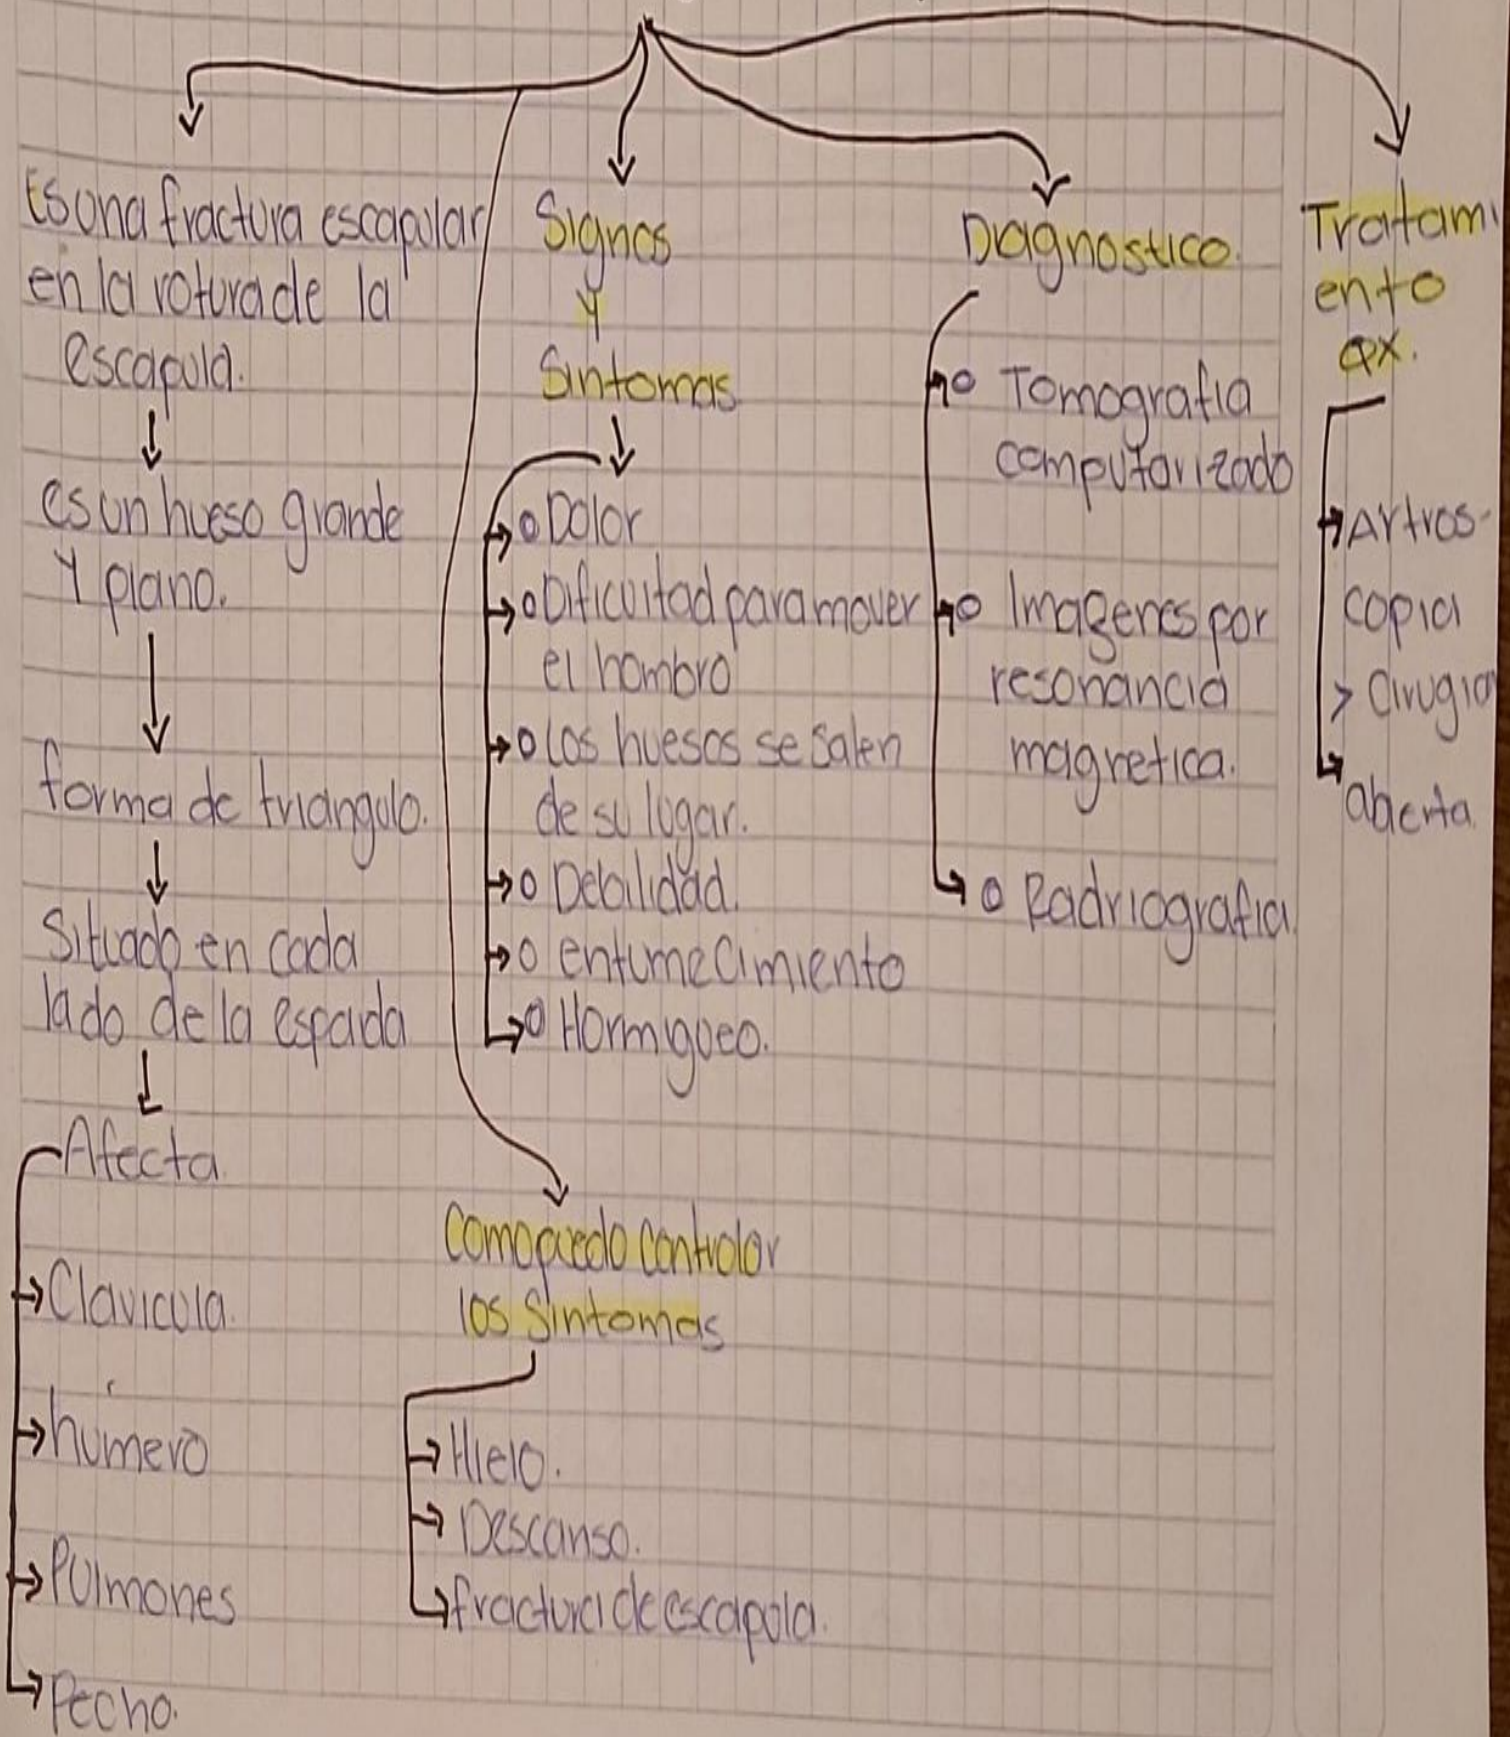 Es una fractura escapular
en la rotura de la
escapula.
es un hueso grande
Y plano.
forma de triangulo.
Situado en cada
lado de la espada
Afecta.
Clavicula.
húmero
Pulmones
Pecho.
Signos
Y
Sintomas
Dolor
Dificultad para mover
el hombro
Los huesos se salen
de su lugar.
Debilidad.
entumecimiento
Hormigueo.
Como puedo controlar
los Sintomas
Hielo.
Descanso.
fractura de escapula.
Diagnostico.
Tomografia
computarizado
Imagenes por
resonancia
magnetica.
Radriografia
Tratami
ento
qx.
Artros-
copia
> Cirugia
abierta.